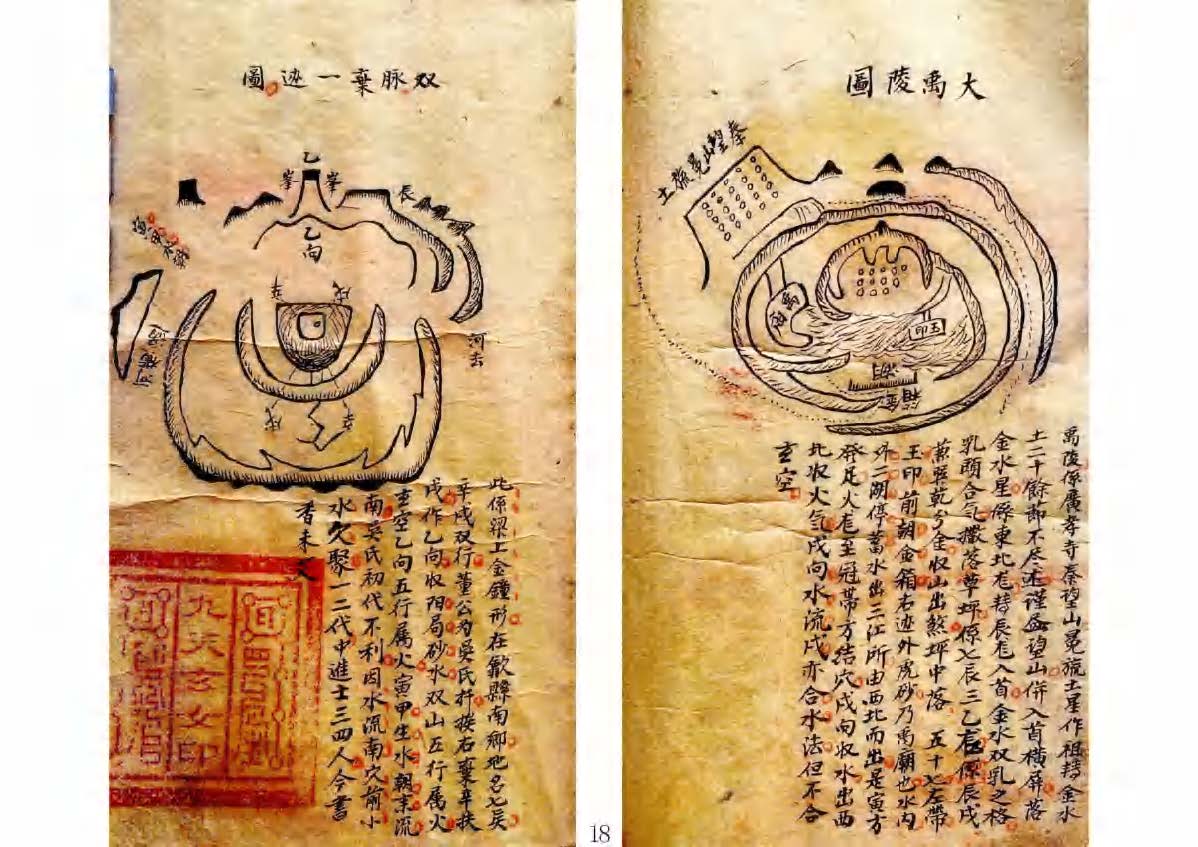 大禹陵圖
秦望山冕旒土
禹廟
玉印
禹陵係廣孝寺秦望山冕旒土星作祖轉金水
土二十餘節不尽述謹益望山併入首橫屏落
金水星係東北龙轉辰龙入首金水双乳之格
乳頭合气撒落草坪係乂辰三乙右係辰戌
兼巽乾分金収山出煞坪中落 五十七左帶
玉印前朝金箱右迹外虎砂乃禹廟也水内
外二湖停蓄水出三江所由西北而出是寅方
發足火龙至冠帶方結穴戌向収水出西
北収火气戌向水流戌亦合水法但不合
玄空
双脉棄一迹圖
乙
峯
峯
辰
乙向
辛
戌
河去
戌
辛
此係梁上金鐘形在歙縣南鄉地名七吴
辛戌双行董公为吴氏扦挨右棄辛扶
戌作乙向収阳局砂水双山五行属火
玄空乙向五行属火寅甲生水朝末流
南吴氏初代不利因水流南穴前小
水久聚一二代中進士三四人今書
香未艾
九天玄女印
18